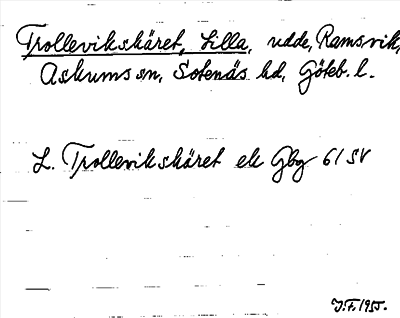 Trollevikskäret, Lilla, udde, Ramsvik,
Askums sn, Sotenäs hd, Göteb. l.
L. Trollevikskäret ek Gbg 61 SV
J.F. 1955.